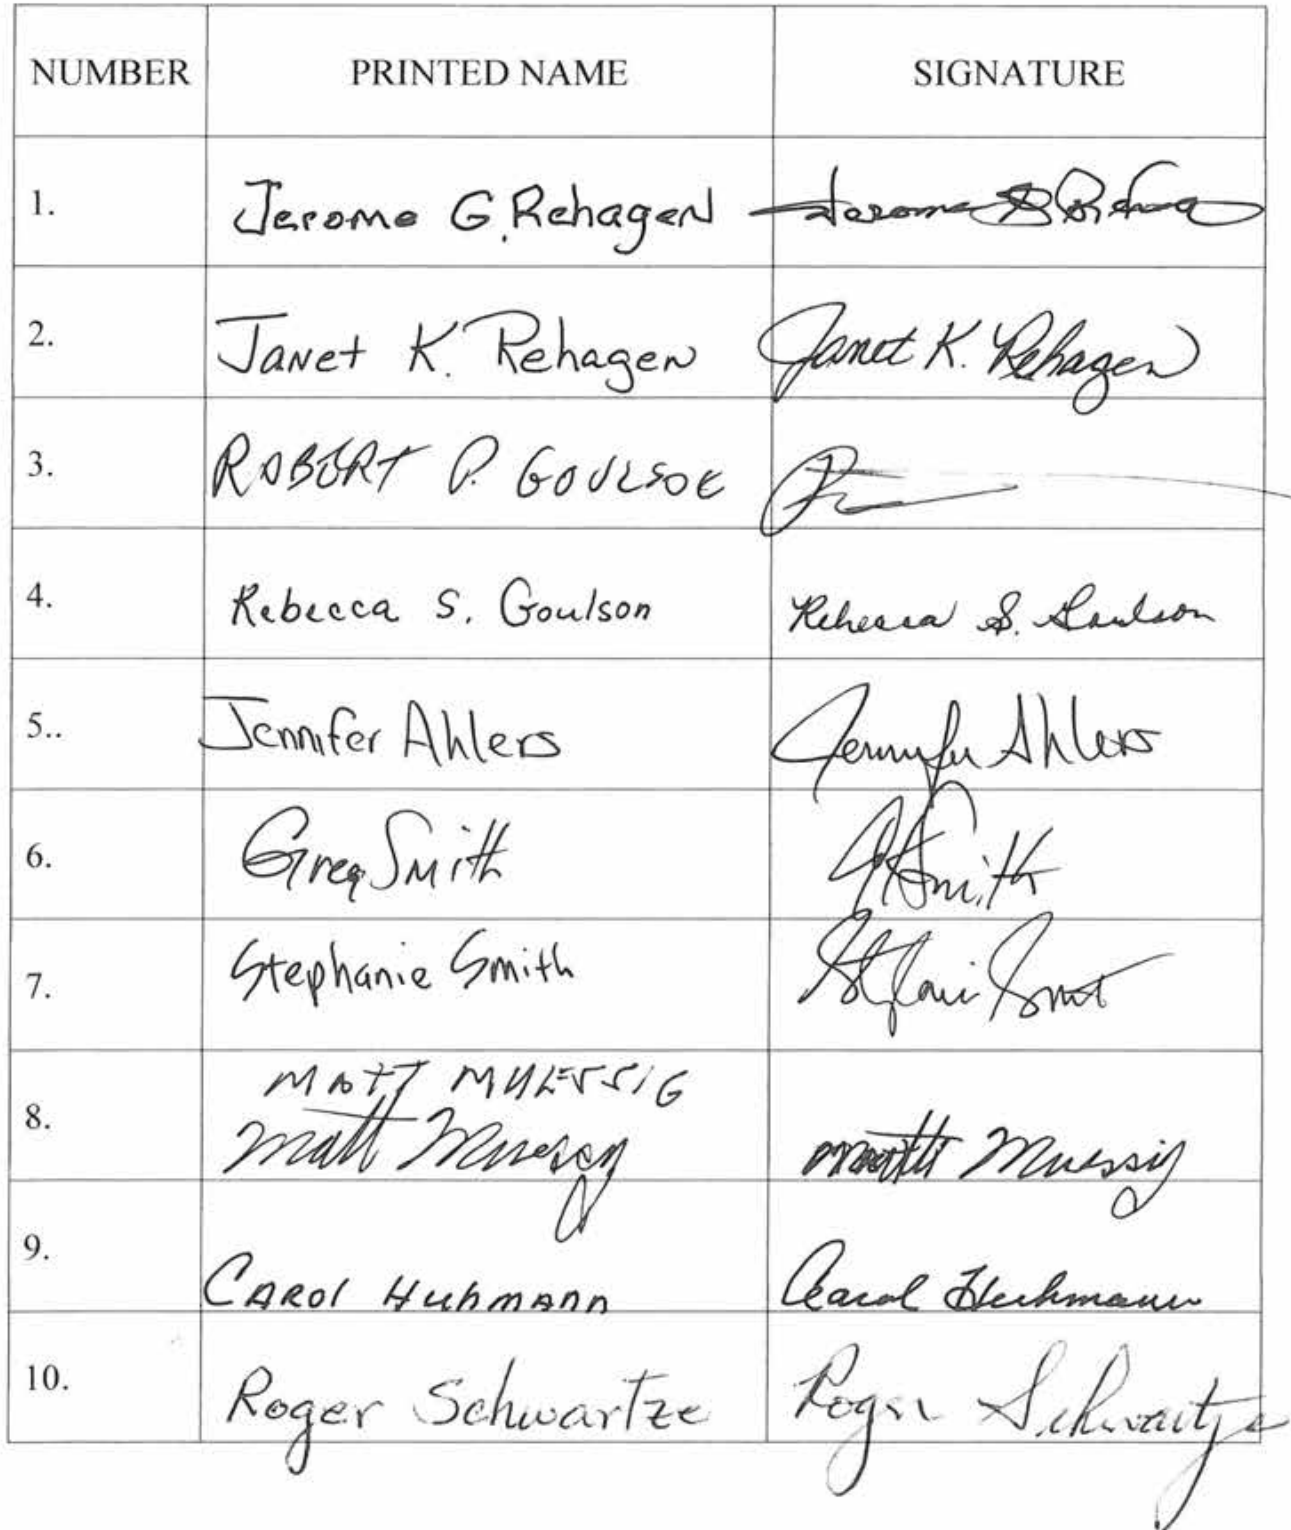 NUMBER PRINTED NAME SIGNATURE
1. Jerome G. Rehagen Jerome G Rehagen
2. Janet K. Rehagen Janet K. Rehagen
3. ROBERT P. GOULSOE
4. Rebecca S. Goulson Rebecca S. Goulson
5.. Jennifer Ahlers Jennifer Ahlers
6. Greg Smith G Smith
7. Stephanie Smith Stephanie Smith
MATT MUESSIG
8. Matt Muessig Matt Muessig
9. CAROL HUHMANN Carol Huhmann
10. Roger Schwartze Roger Schwartze